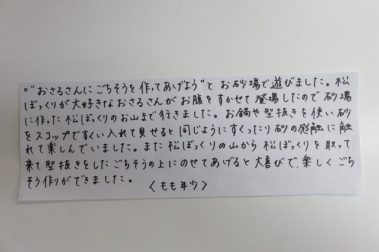 ○"おさるさんにごちそうを作ってあげよう"と お砂場で遊びました。松
ぼっくりが大好きなおさるさんが お腹をすかせて 登場したので 砂場
に作った松ぼっくりのお山まで行きました。お鍋や型抜きを使い砂
をスコップですくい入れて見せると同じようにすくったり砂の感触に触
れて楽しんでいました。また松ぼっくりの山から 松ぼっくりを取って
来て型抜きをしたごちそうの上にのせてあげると大喜びで、楽しく ごち
そう作りができました。 〈もも年少〉